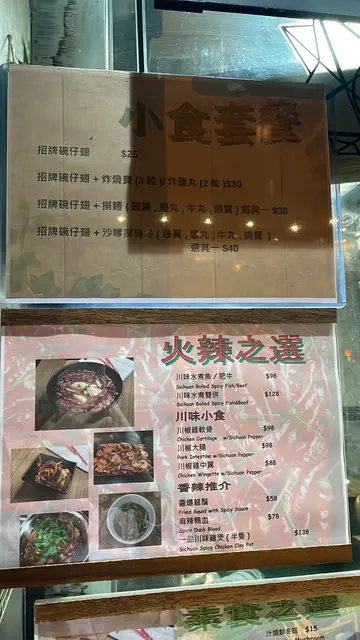 小食套餐
招牌碗仔翅 $25
招牌碗仔翅 + 炸燒賣 (3 粒)/ 炸墨丸 (2 粒)$30
招牌碗仔翅 + 撈麵 ( 雞翼 , 墨丸 , 牛丸 , 燒賣 ) 選其一 $38
招牌碗仔翅 + 沙嗲撈
牛丸 , 燒賣 )
選其一 $40
火辣之選
川味水煮魚 / 肥牛 $98
Sichuan Boiled Spicy Fish/Beef
川味水煮雙併 $128
Sichuan Boiled Spicy Fish&Beef
川味小食
川椒雞軟骨 $98
Chicken Cartilage w/Sichuan Pepper
川椒大腸 $98
Pork Intestine w/Sichuan Pepper
川椒雞中翼 $88
Chicken Wingette w/Sichuan Pepper
香辣推介
醬爆龍鬚 $58
Fried Squid with Spicy Sauce
麻辣鴨血 $78
Spicy Duck Blood
一品川味雞煲 ( 半隻 ) $138
Sichuan Spicy Chicken Clay Pot
素食之選
汁燒鮮冬菇 $15
Mushroom